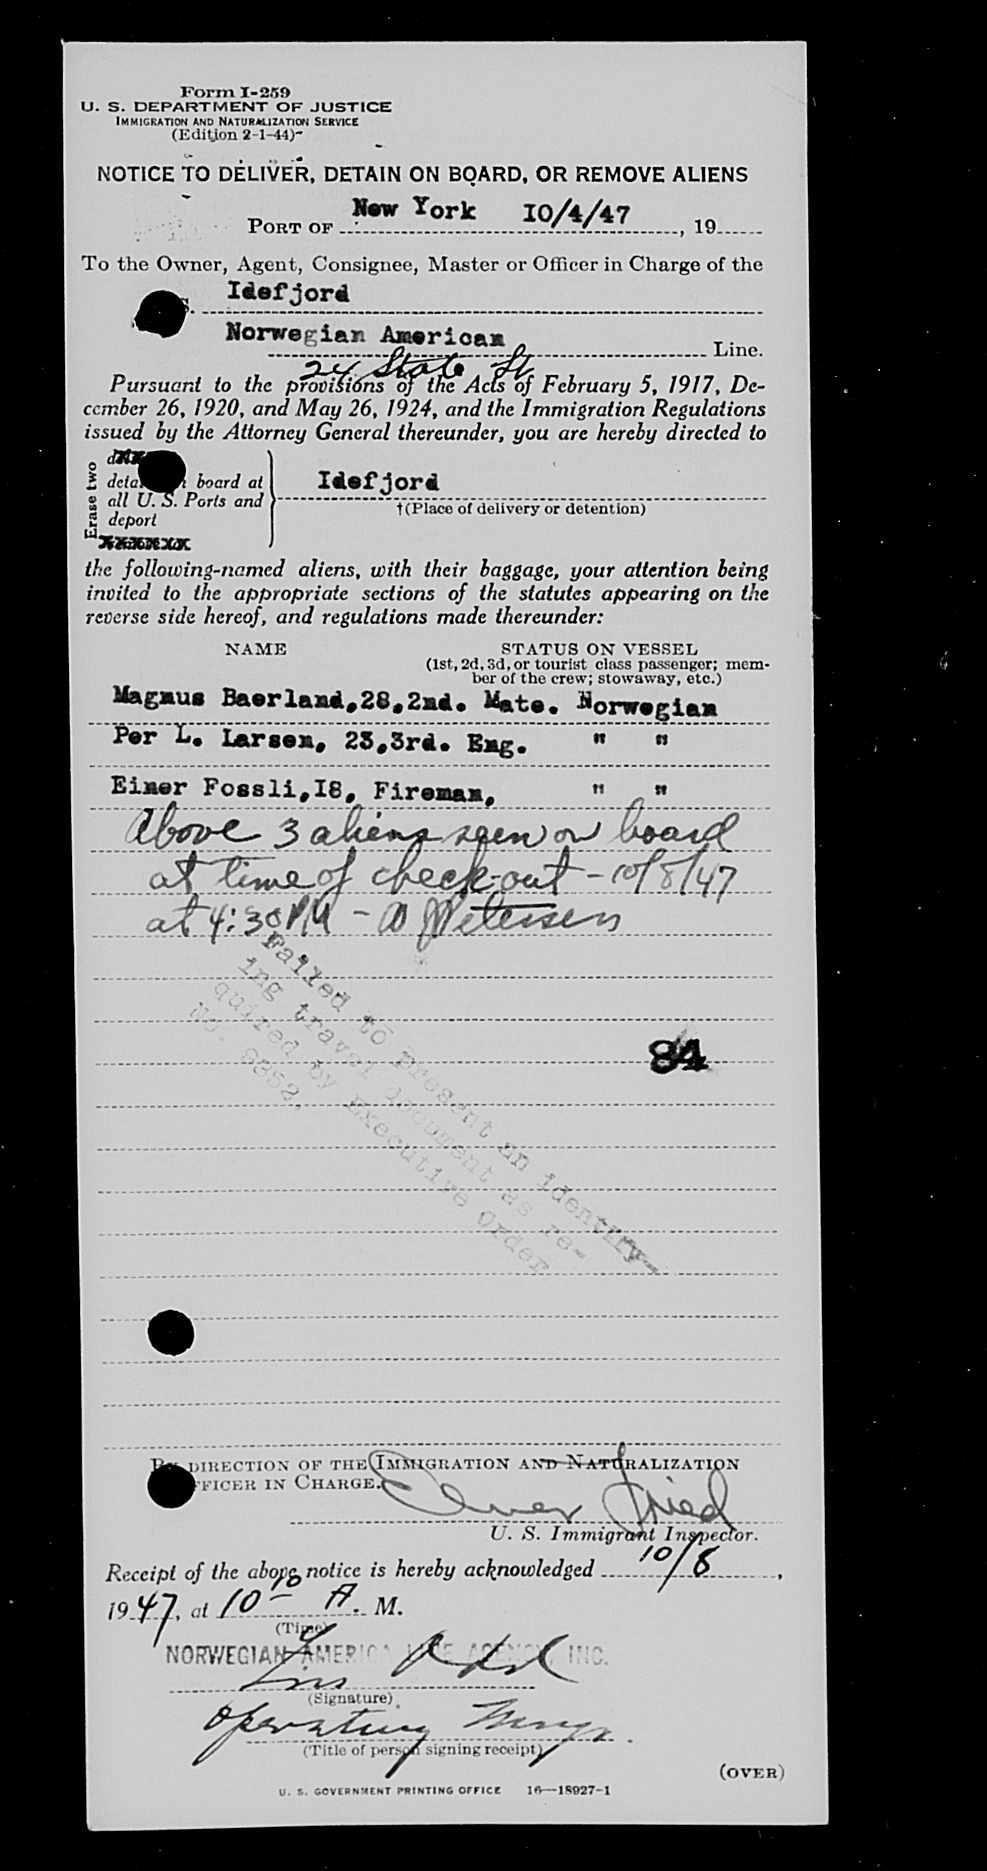 Form I-259
U. S. DEPARTMENT OF JUSTICE
IMMIGRATION AND NATURALIZATION SERVICE
(Edition 2-1-44)
NOTICE TO DELIVER, DETAIN ON BOARD, OR REMOVE ALIENS
PORT OF New York 10/4/47, 19
To the Owner, Agent, Consignee, Master or Officer in Charge of the
S. Idefjord
Norwegian American Line.
24 State St
Pursuant to the provisions of the Acts of February 5, 1917, De-
cember 26, 1920, and May 26, 1924, and the Immigration Regulations
issued by the Attorney General thereunder, you are hereby directed to
Erase two
detain board at
all U. S. Ports and
deport
Idefjord
†(Place of delivery or detention)
the following-named aliens, with their baggage, your attention being
invited to the appropriate sections of the statutes appearing on the
reverse side hereof, and regulations made thereunder:
NAME STATUS ON VESSEL
(1st, 2d, 3d, or tourist class passenger; mem-
ber of the crew; stowaway, etc.)
Magnus Baerland,28,2nd. Mate. Norwegian
Per L. Larsen, 23,3rd. Eng. " "
Einer Fossli,18, Fireman, " "
Above 3 aliens seen on board
at time of check-out - 10/8/47
at 4:30 PM - Petersen
Failed to present an identify-
ing travel document as re-
quired by Executive Order
No. 8352.
84
BY DIRECTION OF THE IMMIGRATION AND NATURALIZATION
OFFICER IN CHARGE.
Elmer Fried
U. S. Immigrant Inspector.
Receipt of the above notice is hereby acknowledged 10/8,
1947, at 10 10 A. M.
(Time)
NORWEGIAN AMERICA LINE AGENCY, INC.
(Signature)
Operating Mangr.
(Title of person signing receipt)
(OVER)
U. S. GOVERNMENT PRINTING OFFICE 16—18927-1